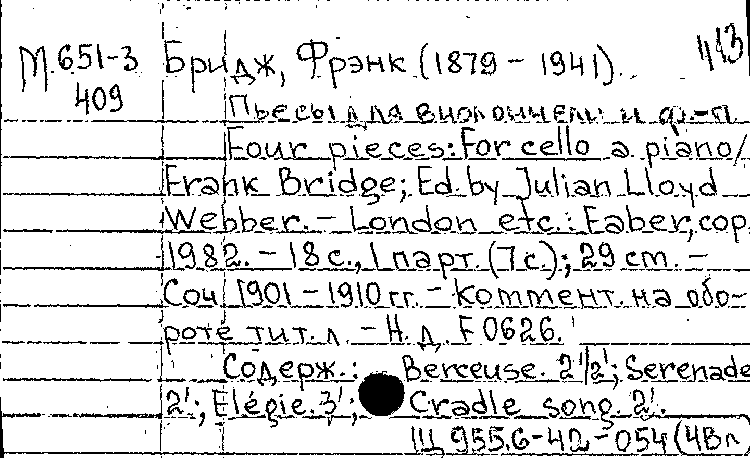 М.651-3 Бридж, Фрэнк (1879 – 1941). 413
409
Пьесы для виолончели и ф.-п.
Four pieces: For cello a. piano/
Frank Bridge; Ed. by Julian Lloyd
Webber. – London etc.: Faber, cop.
1982. – 18 с., 1 парт. (7 с.); 29 cm. –
Соч. 1901 – 1910 гг. – Коммент. на обо-
роте тит. л. – Н. д. F 0626.
Содерж.: Berceuse. 2'1/2'; Serenade
2'; Elégie. 3'; Cradle song. 2'.
Щ 955.6-42-054 (4Вл